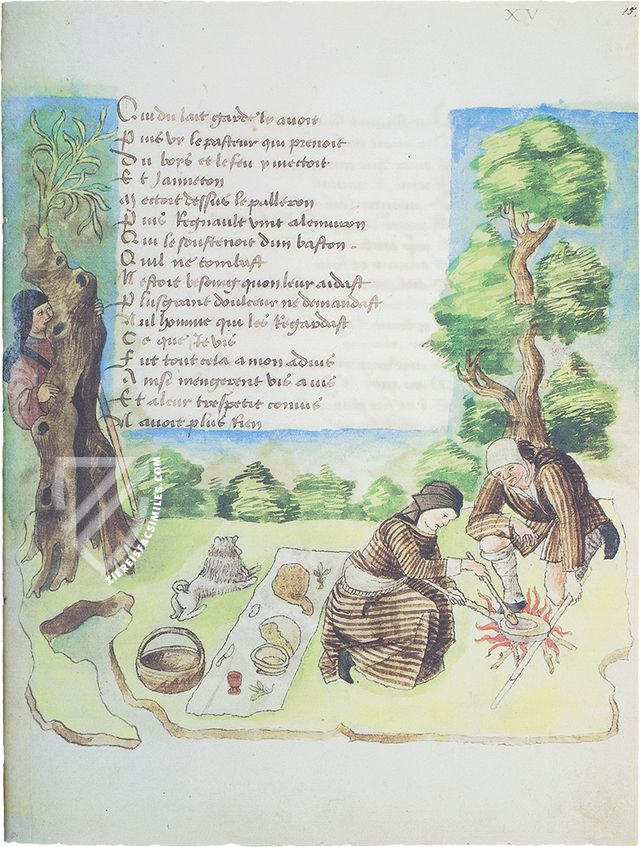 XV
15.
Qui du lait garde ly avoit
Puis vy le pasteur qui prenoit
Du boys et le feu y mectoit
Et Janneton
Mectoit dessus le palleron
Puis Regnault vint alenviron
Qui le soustenoit dun baston
Quil ne tombast
Nestoit besoing quon leur aidast
Plus grant doulceur ne demandast
Nul homme qui les Regardast
Ce que Je vis
Fut tout cela a mon advis
Ainsi mengerent vis a vis
Et a leur trespetit convis
Navoit plus Rien
ZIEREISFACSIMILES.COM